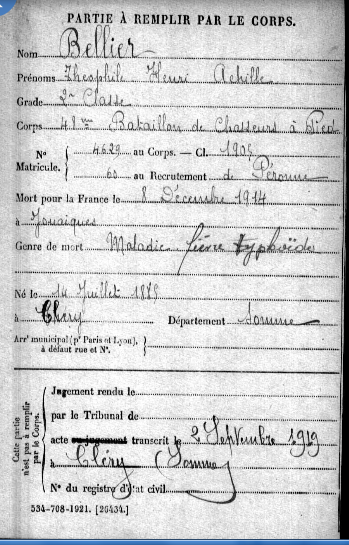 PARTIE À REMPLIR PAR LE CORPS.
Nom Bellier
Prénoms Théophile Henri Achille
Grade 2me Classe
Corps 48me Bataillon de Chasseurs à Pied
N° 4629 au Corps. — Cl. 1905
Matricule. 60 au Recrutement de Péronne
Mort pour la France le 8 Décembre 1914
à
Genre de mort Maladie fièvre typhoïde
Né le 14 Juillet 1885
à Cléry Département Somme
Arrt municipal (pr Paris et Lyon),
à défaut rue et N°.
Cette partie
n'est pas à remplir
par le Corps.
Jugement rendu le
par le Tribunal de
acte ou jugement transcrit le 2 Septembre 1919
à Cléry (Somme)
N° du registre d'état civil
534-708-1921. [26434.]